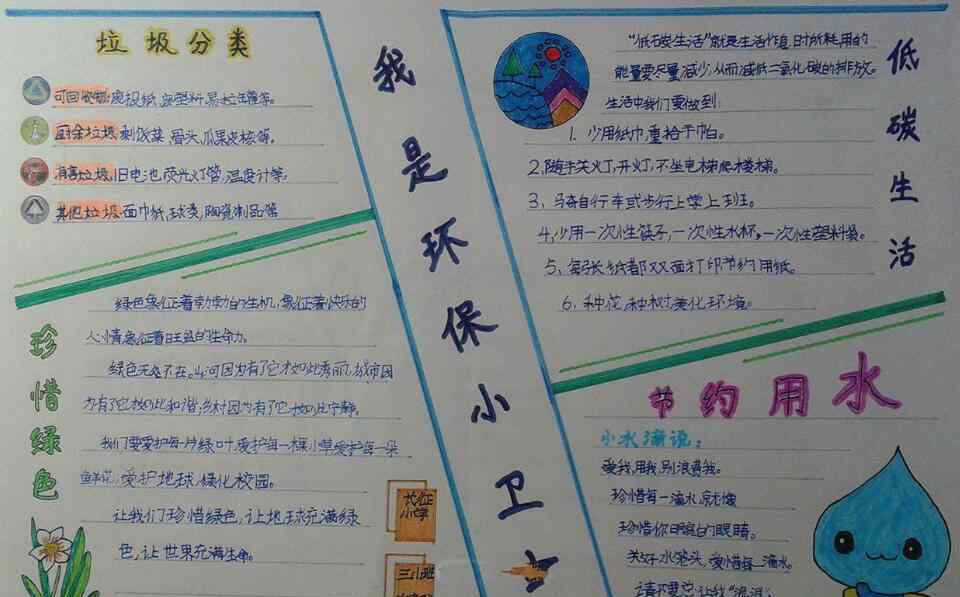 垃圾分类
可回收物:废报纸、废塑料、易拉罐等。
厨余垃圾:剩饭菜、骨头、瓜果皮核等。
有害垃圾:旧电池、荧光灯管、温度计等。
其他垃圾:面巾纸、球类、陶瓷制品等
珍惜绿色
绿色象征着勃勃的生机,象征着快乐的
心情,象征着旺盛的生命力。
绿色无处不在。山河因为有了它才如此秀丽,城市因
为有了它才如此和谐,乡村因为有了它才如此宁静。
我们要爱护每一片绿叶,爱护每一棵小草,爱护每一朵
鲜花,爱护地球,绿化校园。
让我们珍惜绿色,让地球充满绿
色,让世界充满生命。
长征
小学
三小班
我是环保小卫士
低碳生活
“低碳生活”就是生活作息时所耗用的
能量要尽量减少,从而减低二氧化碳的排放。
生活中我们要做到:
1、少用纸巾,重拾手帕。
2、随手关灯、开灯,不坐电梯爬楼梯。
3、骑自行车或步行上学上班。
4、少用一次性筷子,一次性水杯,一次性塑料袋。
5、每张纸都双面打印节约用纸。
6、种花、种树、美化环境。
节约用水
小水滴说:
爱我,用我,别浪费我。
珍惜每一滴水,就像
珍惜你明亮的眼睛。
关好水笼头,爱惜每一滴水
请不要忘,让我“流泪”